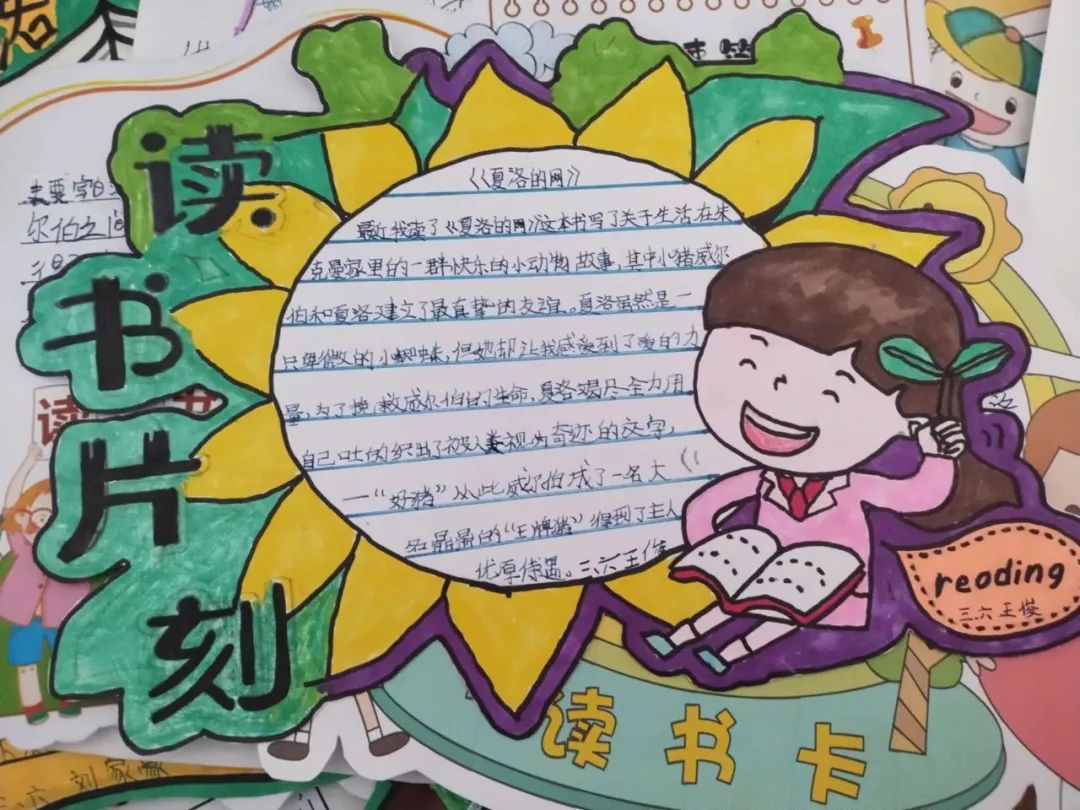 读书片刻
《夏洛的网》
最近我读了《夏洛的网》这本书写了关于生活在朱
克曼家里的一群快乐的小动物故事,其中小猪威尔
伯和夏洛建立了最真挚的友谊。夏洛虽然是一
只卑微的小蜘蛛,但她却让我感受到了爱的力
量,为了挽救威尔伯的生命,夏洛竭尽全力用
自己吐的丝织出了被人类视为奇迹的文字,
一"好猪"从此威尔伯成了一名大
名鼎鼎的"王牌猪"得到了主人
优厚待遇。三六王俊
reading
三六王俊
读书卡
尔伯之间
六 刘家